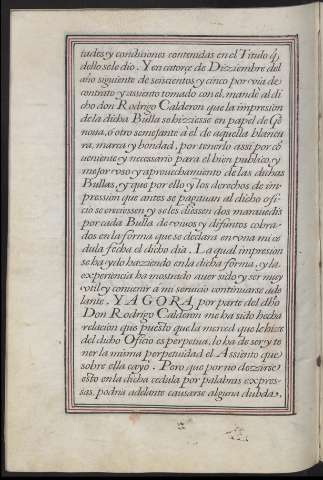 tades y condiciones contenidas en el Titulo q̃
dello se le dio. Y en catorçe de Dizziembre del
año siguiente de seiscientos y cinco por via de
contrato y assiento tomado con el, mandè al di
cho don Rodrigo Calderon que la impresion
de la dicha Bulla se hizziesse en papel de Gè
noua, ó otro semejante a el de aquella blancu
ra, marca y bondad, por tenerlo assi por cõ
ueniente y necessario para el bien publico, y
mejor vso y aprouechamiento de las dichas
Bullas, y que por ello y los derechos de im-
pression que antes se pagauan al dicho ofi-
cio se creciessen y se les diessen dos marauedis
por cada Bulla de viuos y difuntos cobra-
dos en la forma que se declara en vna mi ce
dula fecha el dicho dia. La qual impresion
se ha ydo hazziendo en la dicha forma, y la
experiencia ha mostrado auer sido y ser muy
vtil y conuenir a mi seruicio continuarse ade
lante. Y AGORA, por parte del dho
Don Rodrigo Calderon me ha sido hecha
relacion que puesto que la merced que le hize
del dicho Oficio es perpetua, lo ha de ser y te
ner la misma perpetuidad el Assiento que
sobre ella cayò. Pero que por no dezzirse
esto en la dicha cedula por palabras expres-
sas, podria adelante causarse alguna dubda,